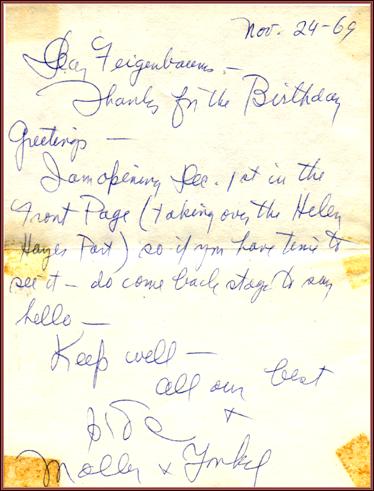 Nov. 24-69
Dear Feigenbaums -
Thanks for the Birthday
Greetings -
I am opening Dec. 1st in the
Front Page (taking over the Helen
Hayes Part) so if you have time to
see it - do come back stage to say
hello -
Keep well -
all our best
+
Molly &